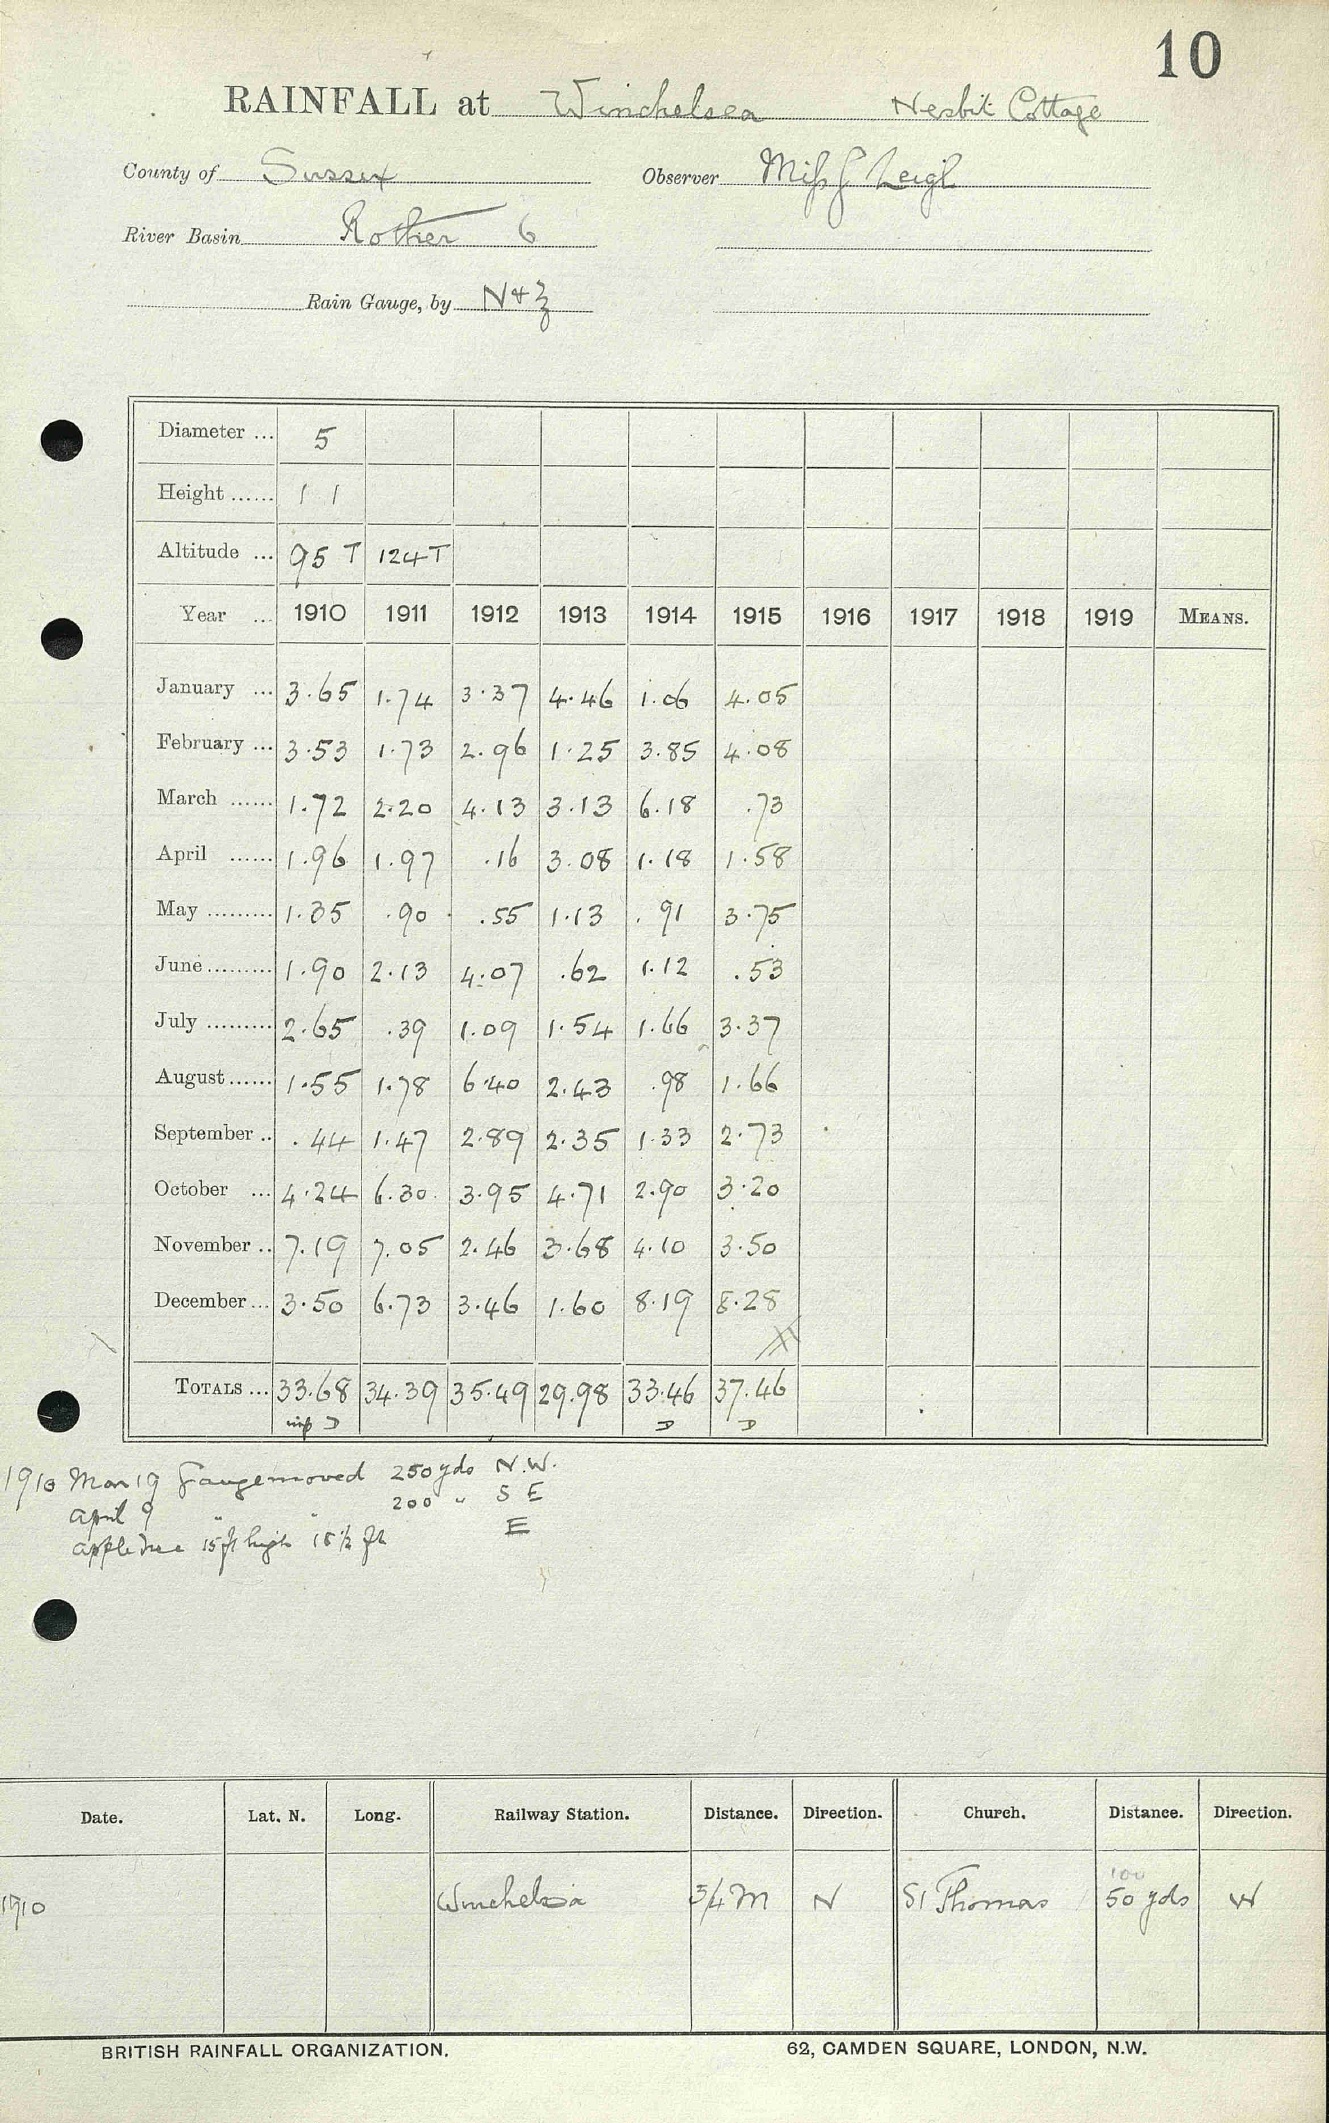 10
RAINFALL at Winchelsea Nesbit Cottage
County of Sussex Observer Miss G Leigh
River Basin Rother 6
Rain Gauge, by N & Z
Diameter ... 5
Height ...... 1 1
Altitude ... 95 T 124 T
Year ... 1910 1911 1912 1913 1914 1915 1916 1917 1918 1919 MEANS.
January ... 3.65 1.74 3.37 4.46 1.06 4.05
February ... 3.53 1.73 2.96 1.25 3.85 4.08
March ...... 1.72 2.20 4.13 3.13 6.18 .73
April ...... 1.96 1.97 .16 3.08 1.18 1.58
May ......... 1.35 .90 .55 1.13 .91 3.75
June ......... 1.90 2.13 4.07 .62 1.12 .53
July ......... 2.65 .39 1.09 1.54 1.66 3.37
August ...... 1.55 1.78 6.40 2.43 .98 1.66
September .. .44 1.47 2.89 2.35 1.33 2.73
October ... 4.24 6.30 3.95 4.71 2.90 3.20
November .. 7.19 7.05 2.46 3.68 4.10 3.50
December ... 3.50 6.73 3.46 1.60 8.19 8.28
TOTALS ... 33.68 34.39 35.49 29.98 33.46 37.46
imp D D D
1910 Mar 19 Gauge moved 250 yds N.W.
April 9 " " 200 " S E
apple tree 15 ft high 18 1/2 ft E
Date. Lat. N. Long. Railway Station. Distance. Direction. Church. Distance. Direction.
100
1910 Winchelsea 3/4 M N St Thomas 50 yds W
BRITISH RAINFALL ORGANIZATION. 62, CAMDEN SQUARE, LONDON, N.W.